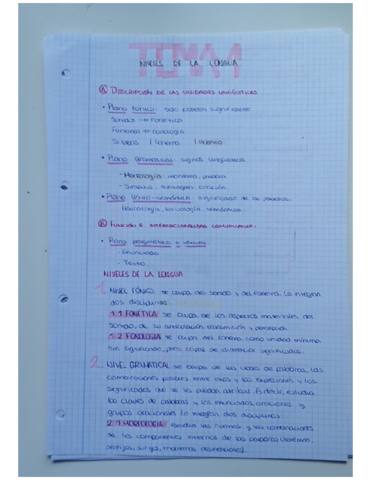 TEMA 1
NIVELES DE LA LENGUA
Ⓐ DESCRIPCIÓN DE LAS UNIDADES LINGÜÍSTICAS
• Plano fónico: solo poseen significante
Sonidos → Fonética
Fonemas → Fonología
Sílabas
• Plano gramatical: signos lingüísticos
- Morfología: monema, palabra
- Sintaxis: sintagma, oración
• Plano léxico-semántico: significado de las palabras
lexicología, semántica.
Ⓑ FUNCIÓN E INTENCIONALIDAD COMUNICATIVA:
• Plano pragmático o textual
- Enunciado
- Texto
NIVELES DE LA LENGUA
1. NIVEL FÓNICO se ocupa del sonido y del fonema. Lo integran
dos disciplinas:
1.1 FONÉTICA se ocupa de los aspectos materiales del
sonido, de su articulación, transmisión y percepción.
1.2 FONOLOGÍA se ocupa del fonema como unidad mínima
sin significado, pero capaz de diferenciar significados.
2. NIVEL GRAMATICAL se ocupa de las clases de palabras, las
combinaciones posibles entre ellas y las expresiones y los
significados que se les puedan atribuir. Es decir, estudia
las clases de palabras y los enunciados, oraciones y
grupos oracionales. Lo integran dos disciplinas:
2.1 MORFOLOGÍA estudia las formas y las combinaciones
de los componentes internos de las palabras